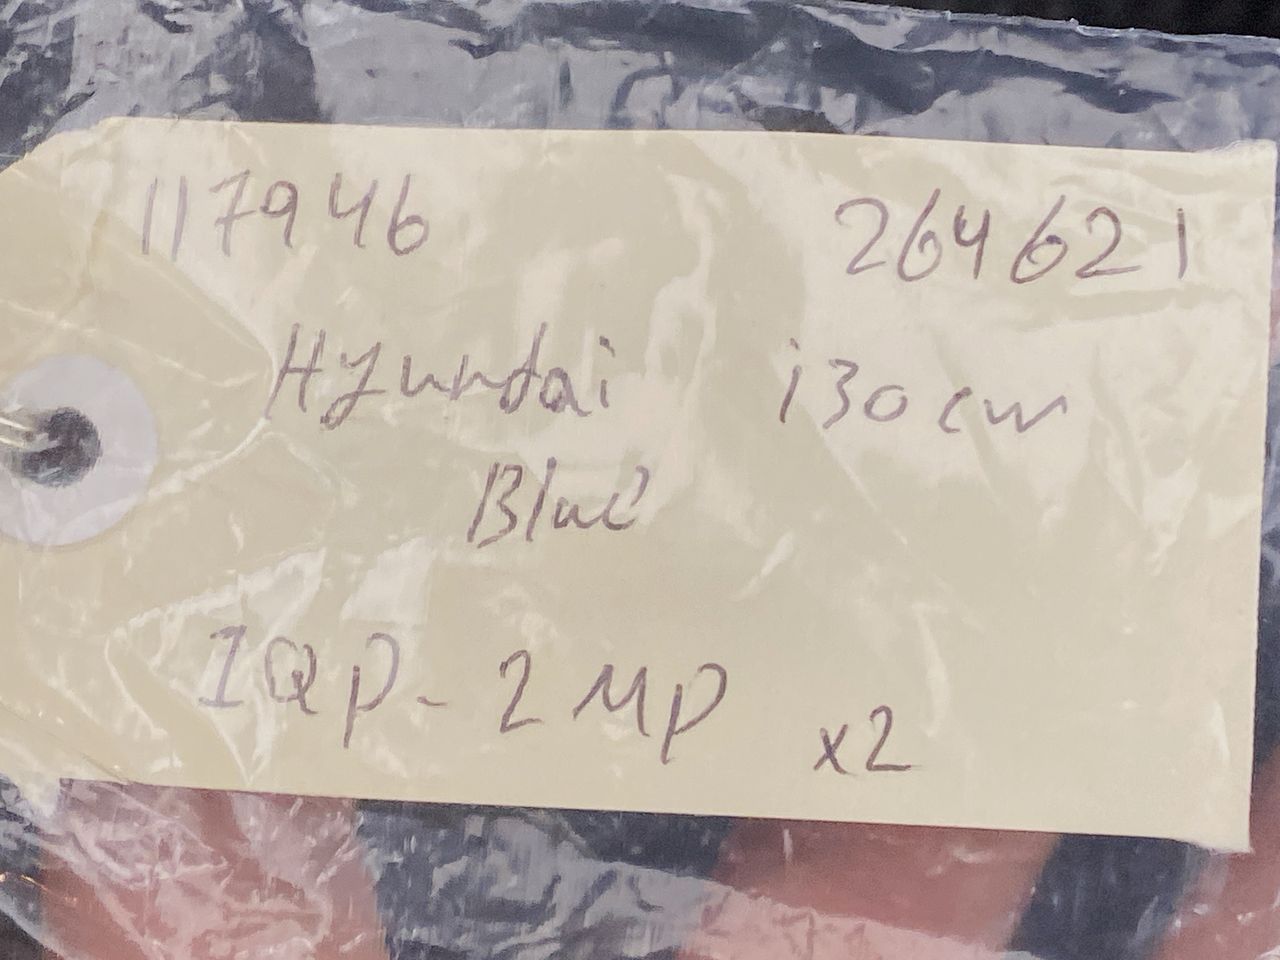 117946 264621
Hyundai i30cw
Blue
IQP-2MP x2